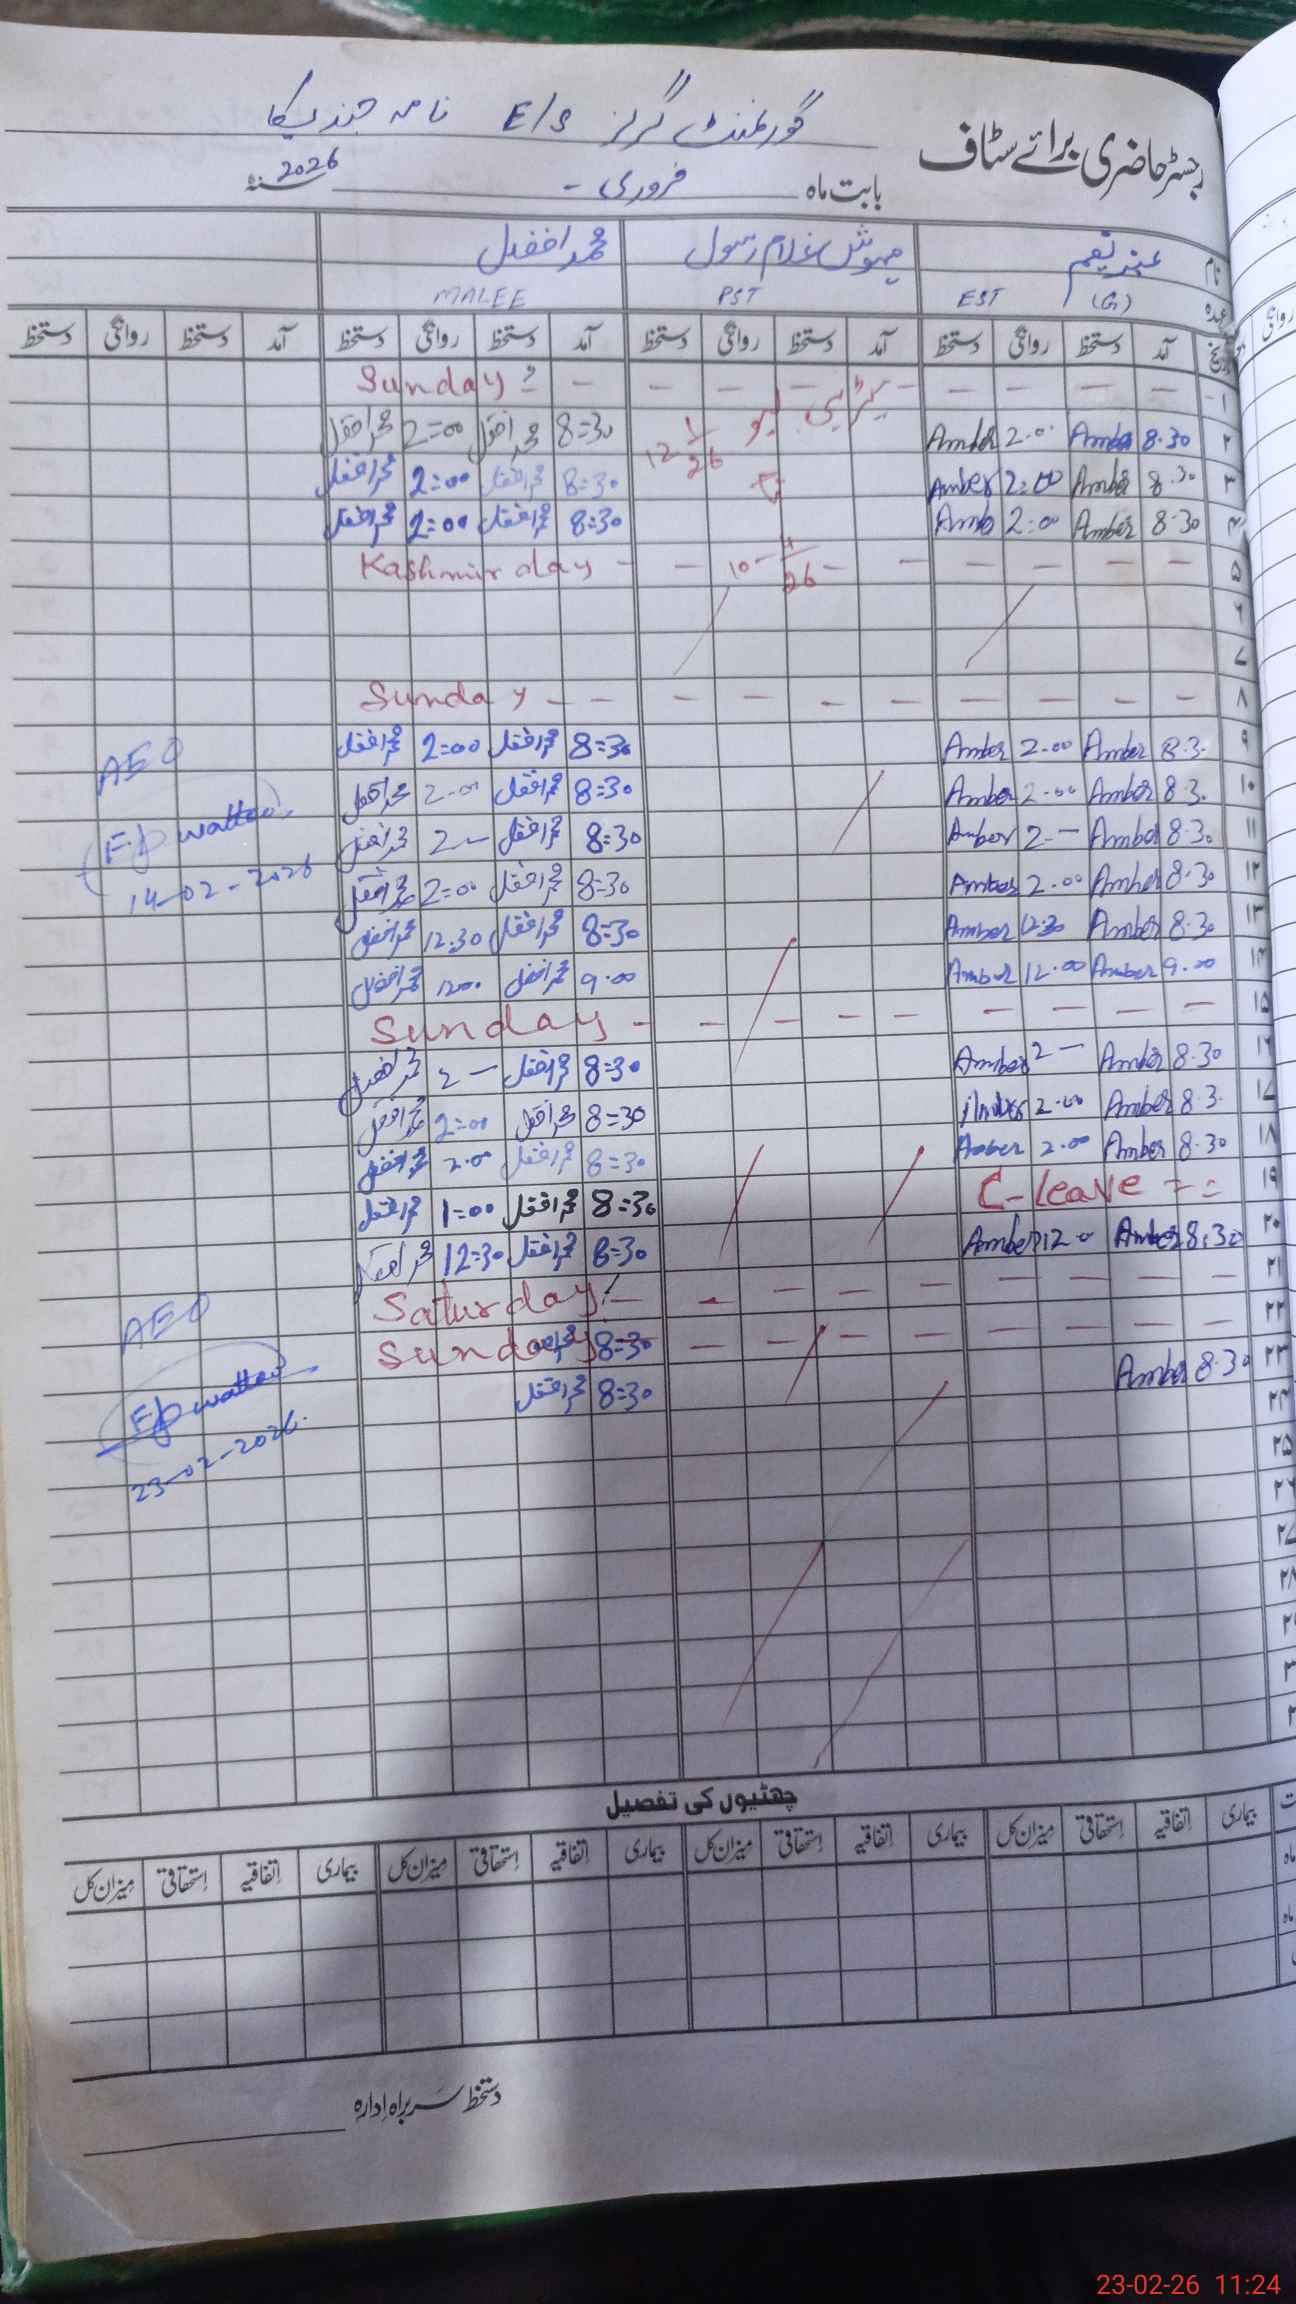 رجسٹر حاضری برائے سٹاف گورنمنٹ گرلز E/S
بابت ماہ فروری - سنہ 2026
نام عنبر نعیم مہوش غلام رسول محمد افضل
عہدہ EST (G) PST MALEE
تاریخ آمد دستخط روانگی دستخط آمد دستخط روانگی دستخط آمد دستخط روانگی دستخط آمد دستخط روانگی دستخط
۱ Sunday
۲ 8.30 Amber 2.00 Amber 12 1/26 8=30 محمد افضل 2=00 محمد افضل
۳ 8.30 Amber 2:00 Amber 8=30 محمد افضل 2=00 محمد افضل
۴ 8.30 Amber 2:00 Amb 8=30 محمد افضل 2=00 محمد افضل
۵ 10-4/26 Kashmir day
۶
۷
۸ Sunday
۹ 8.3. Amber 2.00 Amber 8=30 محمد افضل 2=00 محمد افضل
۱۰ 8.3. Amber 2.00 Amber 8=30 محمد افضل 2-00 محمد افضل
۱۱ 8.30 Amber 2.- Amber 8=30 محمد افضل 2- محمد افضل
۱۲ 8.30 Amber 2.00 Amber 8=30 محمد افضل 2=00 محمد افضل
۱۳ 8.30 Amber 12:30 Amber 8=30 محمد افضل 12:30 محمد افضل
۱۴ 9.00 Amber 12.00 Amber 9.00 محمد افضل 1200 محمد افضل
۱۵ Sunday
۱۶ 8.30 Amber 2- Amber 8=30 محمد افضل 2- محمد افضل
۱۷ 8.3. Amber 2.00 Amber 8=30 محمد افضل 2=00 محمد افضل
۱۸ 8.30 Amber 2.00 Amber 8=30 محمد افضل 2.00 محمد افضل
۱۹ C-leave 8=30 محمد افضل 1=00 محمد افضل
۲۰ 8.30 Amber 12.0 Amber 8=30 محمد افضل 12=30
۲۱ Saturday
۲۲ Sunday 8=30
۲۳ 8.30 Amber 8=30 محمد افضل
۲۴
۲۵
۲۶
۲۷
۲۸
AEO
wattoo
14-02-2026
AEO
wattoo
23-02-2026.
چھٹیوں کی تفصیل
بیماری اتفاقیہ استحقاقی میزان کل بیماری اتفاقیہ استحقاقی میزان کل بیماری اتفاقیہ استحقاقی میزان کل
دستخط سربراہ ادارہ
23-02-26 11:24